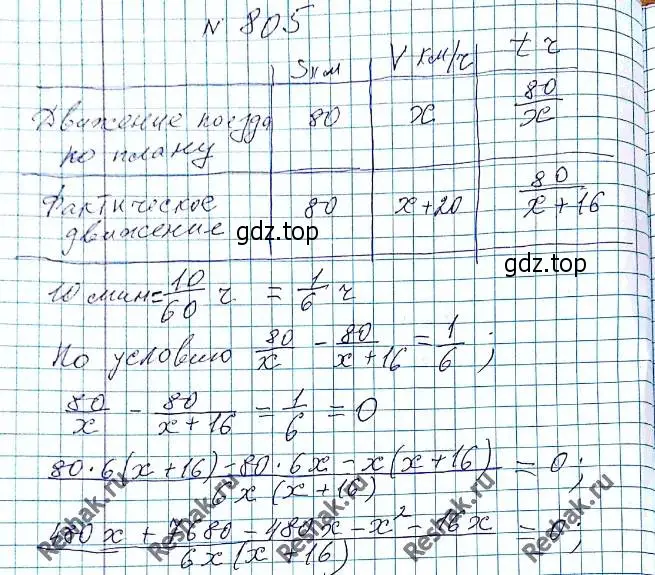 N 805
S км V км/ч t ч
Движение поезда по плану 80 x 80/x
Фактическое движение 80 x+20 80/(x+16)
gdz.top
gdz.top
10 мин = 10/60 ч = 1/6 ч
По условию 80/x - 80/(x+16) = 1/6 ;
80/x - 80/(x+16) = 1/6 = 0
(80·6(x+16) - 80·6x - x(x+16)) / (6x(x+16)) = 0;
(480x + 7680 - 480x - x² - 16x) / (6x(x+16)) = 0;
Reshak.ru
Reshak.ru
Reshak.ru
Reshak.ru
Reshak.ru